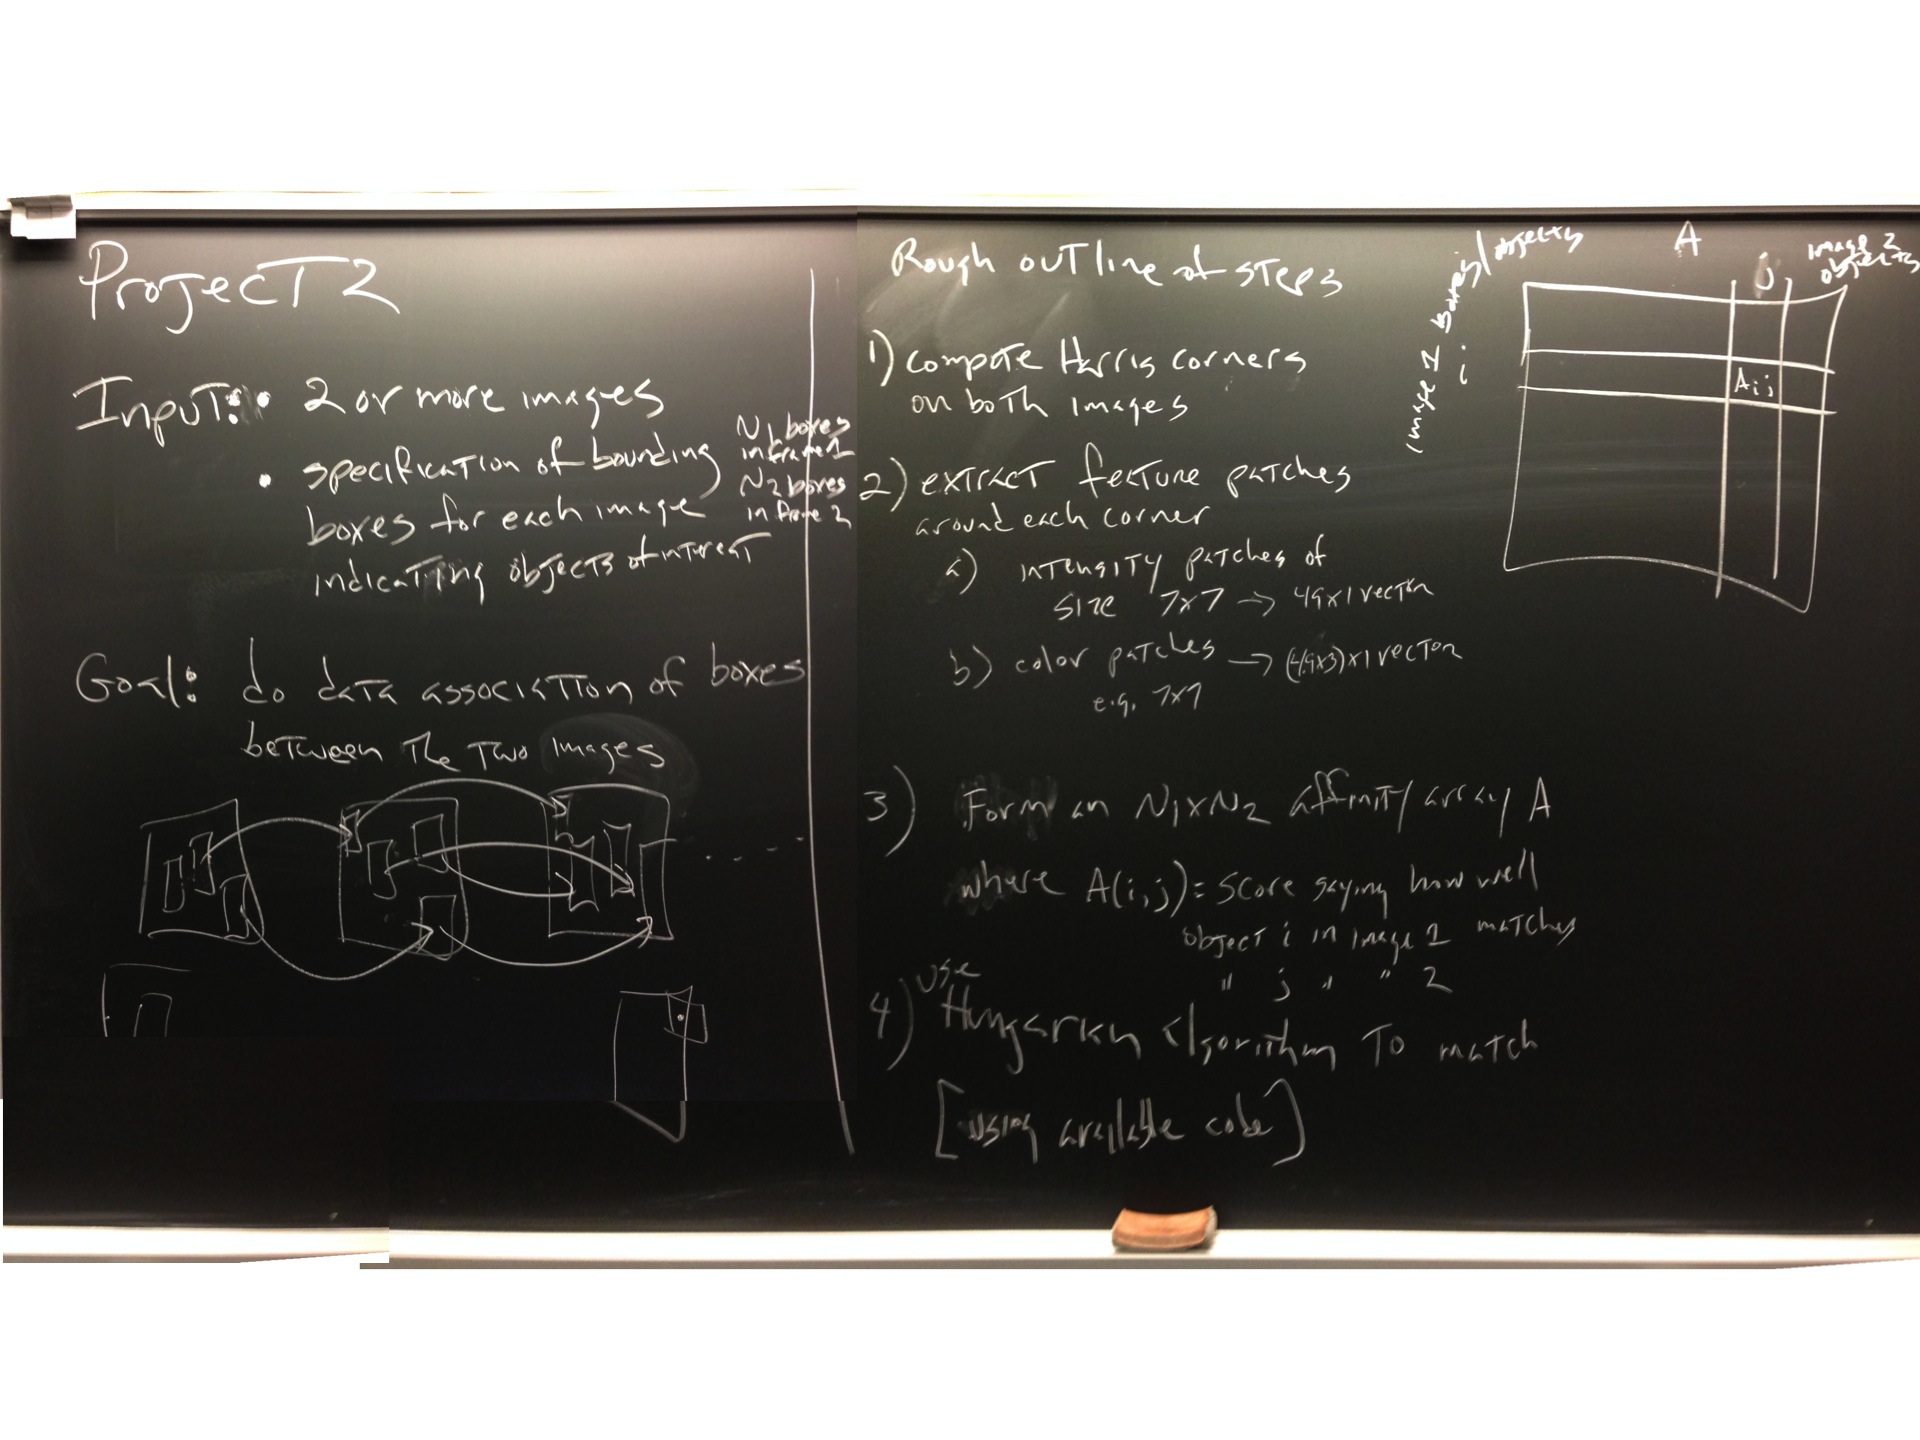 Project 2
Input: • 2 or more images
• specification of bounding
boxes for each image
indicating objects of interest
N1 boxes
in frame 1
N2 boxes
in frame 2
Goal: do data association of boxes
between the two images
Rough outline of steps
1) compute Harris corners
on both images
2) extract feature patches
around each corner
a) intensity patches of
size 7x7 → 49x1 vector
b) color patches → (49x3)x1 vector
e.g. 7x7
3) Form an N1xN2 affinity array A
where A(i,j) = score saying how well
object i in image 1 matches
" j " " 2
4) use
Hungarian algorithm to match
[using available code]
A
image 1 boxes/objects
i
j
image 2
objects
Aij